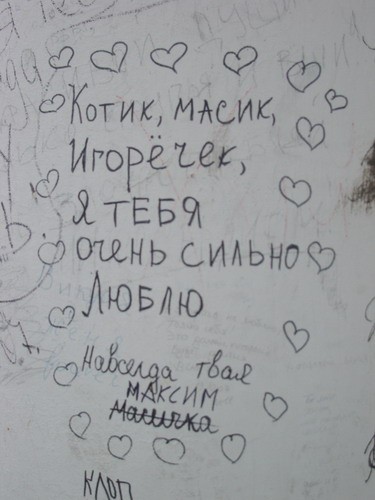 Котик, масик,
Игорёчек,
я тебя
очень сильно
люблю
навсегда твая
МАКСИМ
Масичка
КЛОП